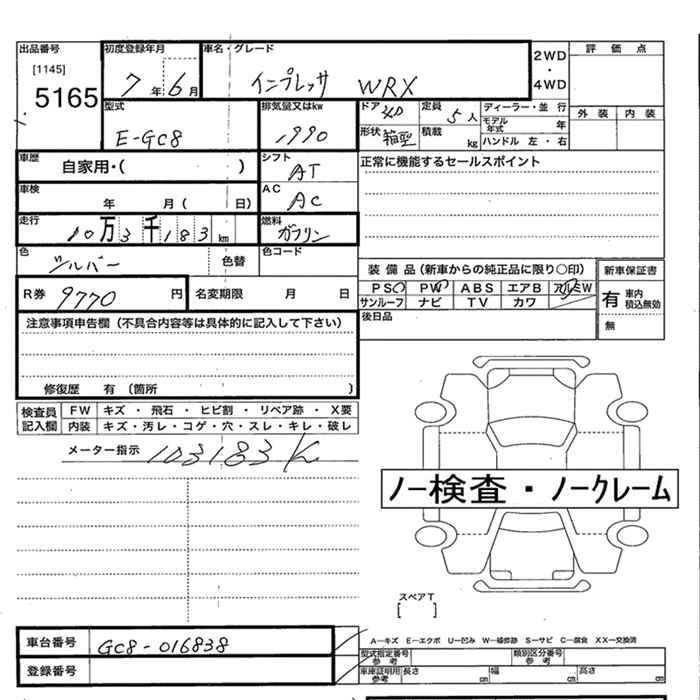 出品番号 初度登録年月 車名・グレード 評価点
[1145] 7年6月 インプレッサ WRX 2WD・4WD
5165
型式 排気量又はkw ドア 4D 定員 5人 ディーラー・並行 外装 内装
E-GC8 1990 形状 箱型 積載 kg モデル年式 年 ハンドル 左・右
車歴 自家用・( ) シフト AT 正常に機能するセールスポイント
車検 年 月 ( 日) AC AC
走行 10万3千183km 燃料 ガソリン
色 シルバー 色替 色コード
装備品(新車からの純正品に限り〇印) 新車保証書
R券 9770円 名変期限 月 日 PS PW ABS エアB アルミW 有 車内積込無効
サンルーフ ナビ TV カワ
注意事項申告欄(不具合内容等は具体的に記入して下さい) 後日品 無
修復歴 有(箇所 )
検査員記入欄 FW キズ・飛石・ヒビ割・リペア跡・X要
内装 キズ・汚レ・コゲ・穴・スレ・キレ・破レ
メーター指示 103183K
ノー検査・ノークレーム
スペアT
[ ]
車台番号 GC8-016838 A―キズ E―エクボ U―凹み W―補修跡 S―サビ C―腐食 XX―交換済
型式指定番号 参考 類別区分番号 参考
登録番号 車庫証明用 参考 長さ cm 幅 cm 高さ cm